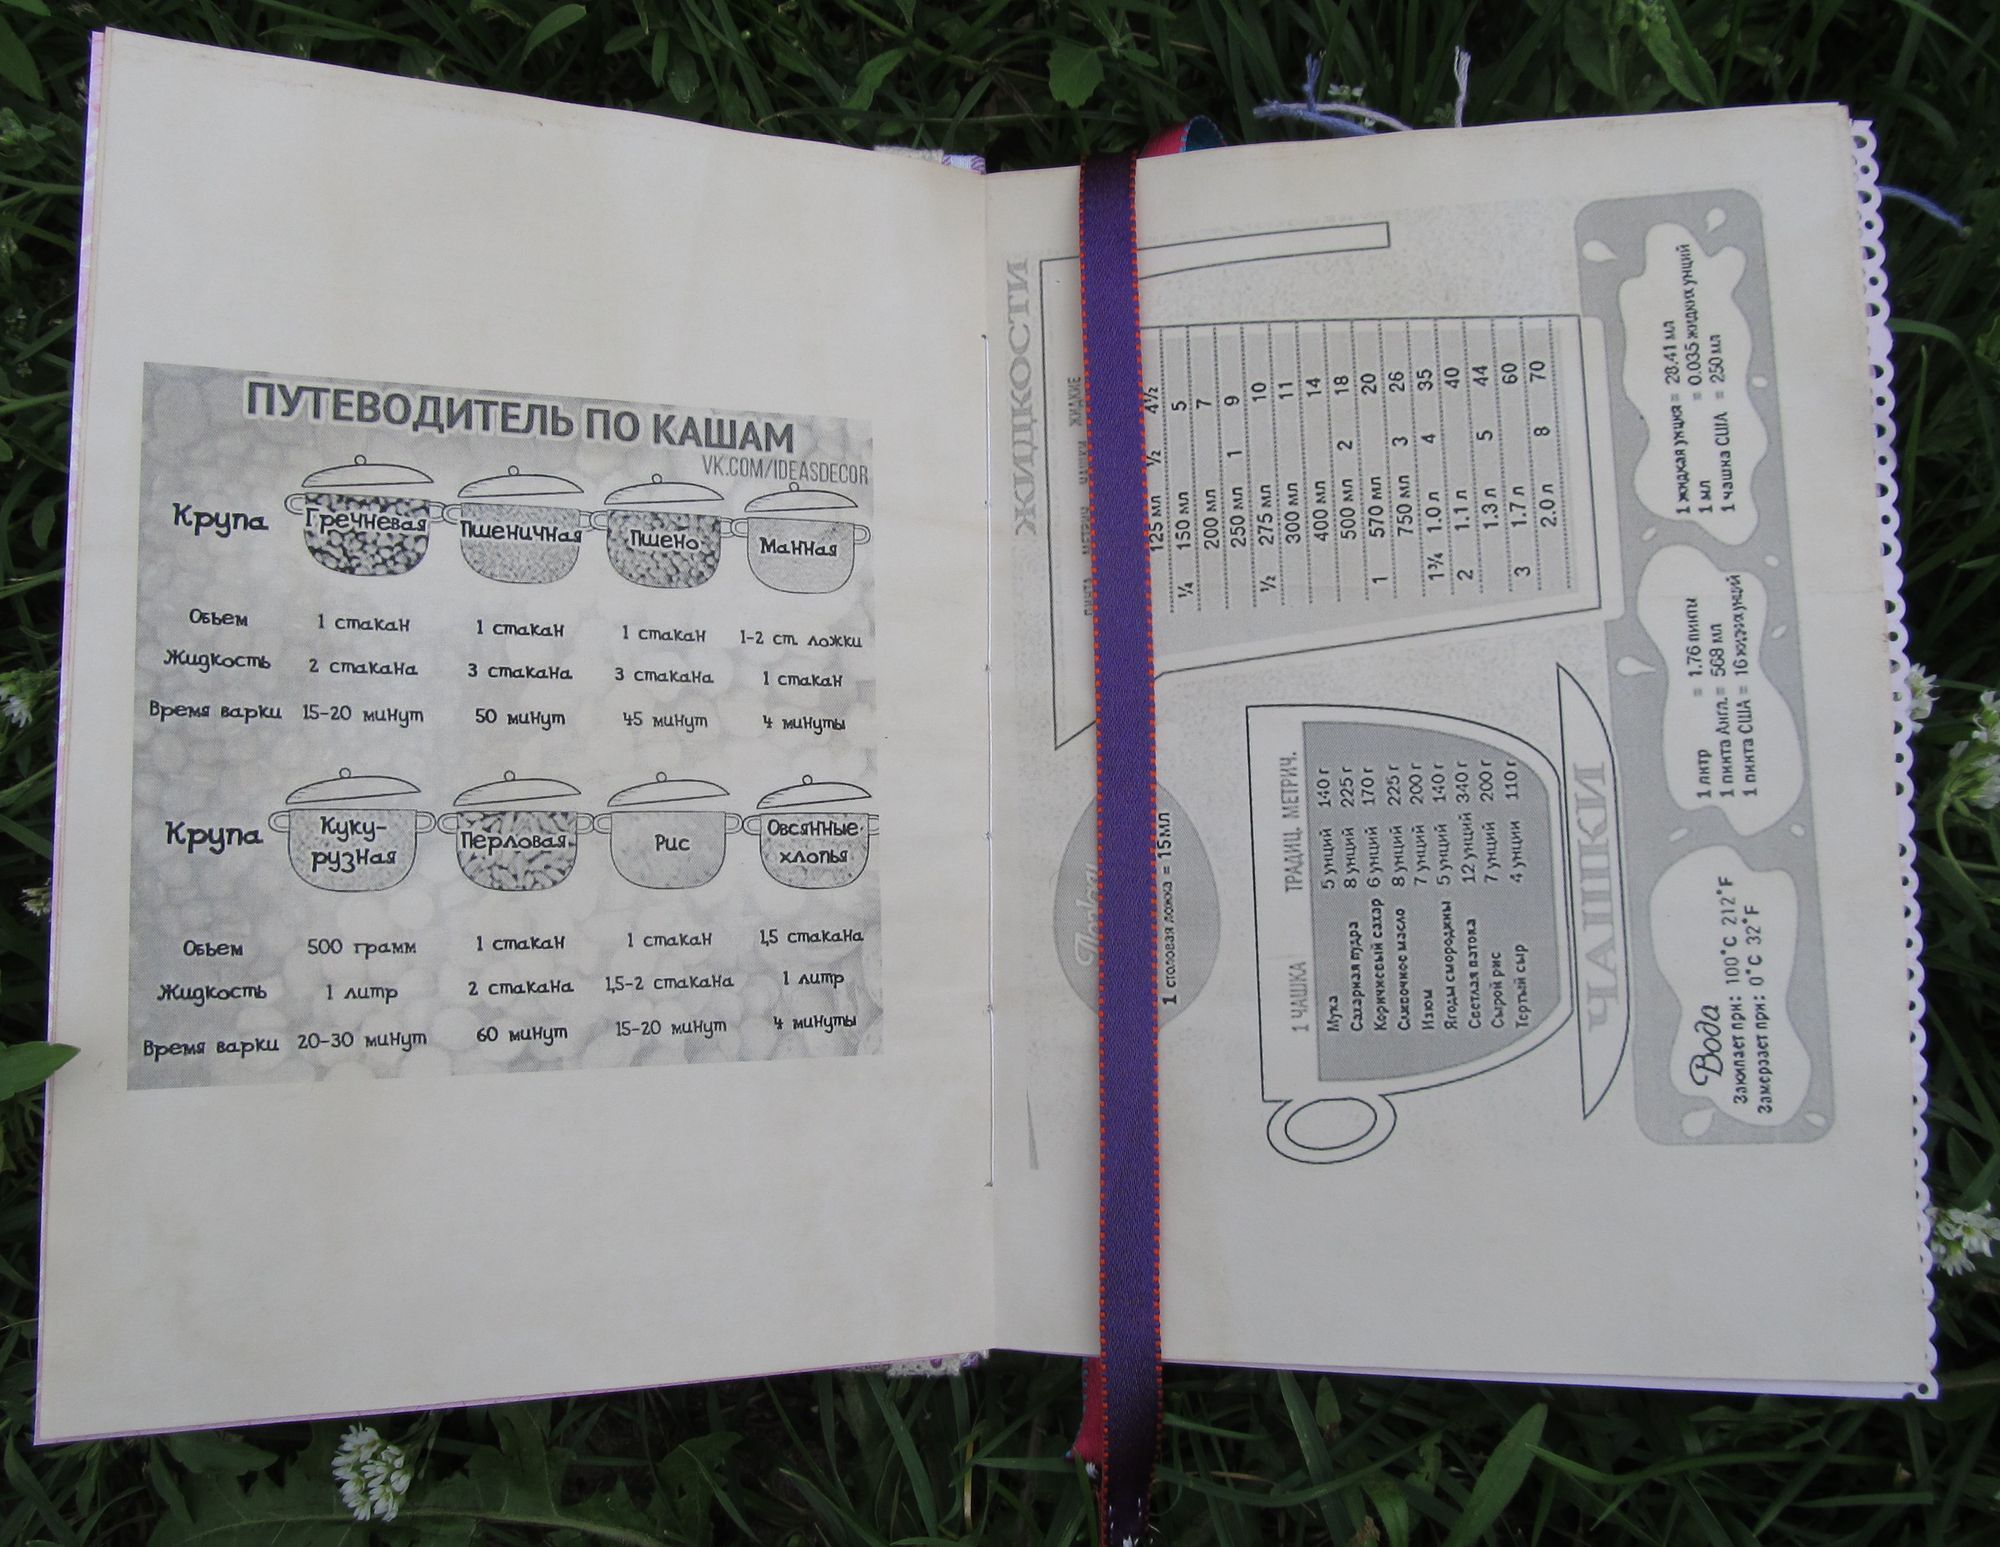 ПУТЕВОДИТЕЛЬ ПО КАШАМ
VK.COM/IDEASDECOR
Крупа Гречневая Пшеничная Пшено Манная
Объем 1 стакан 1 стакан 1 стакан 1-2 ст. ложки
Жидкость 2 стакана 3 стакана 3 стакана 1 стакан
Время варки 15-20 минут 50 минут 45 минут 4 минуты
Крупа Куку- Перловая Рис Овсянные
рузная хлопья
Объем 500 грамм 1 стакан 1 стакан 1,5 стакана
Жидкость 1 литр 2 стакана 1,5-2 стакана 1 литр
Время варки 20-30 минут 60 минут 15-20 минут 4 минуты
ЖИДКОСТИ
ПИНТА МЕТРИЧ. ЧАШКИ ЖИДКИЕ
125 мл ½ 4½
¼ 150 мл 5
200 мл 7
250 мл 1 9
½ 275 мл 10
300 мл 11
400 мл 14
500 мл 2 18
1 570 мл 20
750 мл 3 26
1¾ 1.0 л 4 35
2 1.1 л 40
1.3 л 5 44
3 1.7 л 60
2.0 л 8 70
1 столовая ложка = 15 мл
1 ЧАШКА ТРАДИЦ. МЕТРИЧ.
Мука 5 унций 140 г
Сахарная пудра 8 унций 225 г
Коричневый сахар 6 унций 170 г
Сливочное масло 8 унций 225 г
Изюм 7 унций 200 г
Ягоды смородины 5 унций 140 г
Светлая патока 12 унций 340 г
Сырой рис 7 унций 200 г
Тертый сыр 4 унции 110 г
ЧАШКИ
Вода
Закипает при: 100°C 212°F
Замерзает при: 0°C 32°F
1 литр = 1.76 пинты
1 пинта Англ. = 568 мл
1 пинта США = 16 жидких унций
1 жидкая унция = 28.41 мл
1 мл = 0.035 жидких унций
1 чашка США = 250 мл